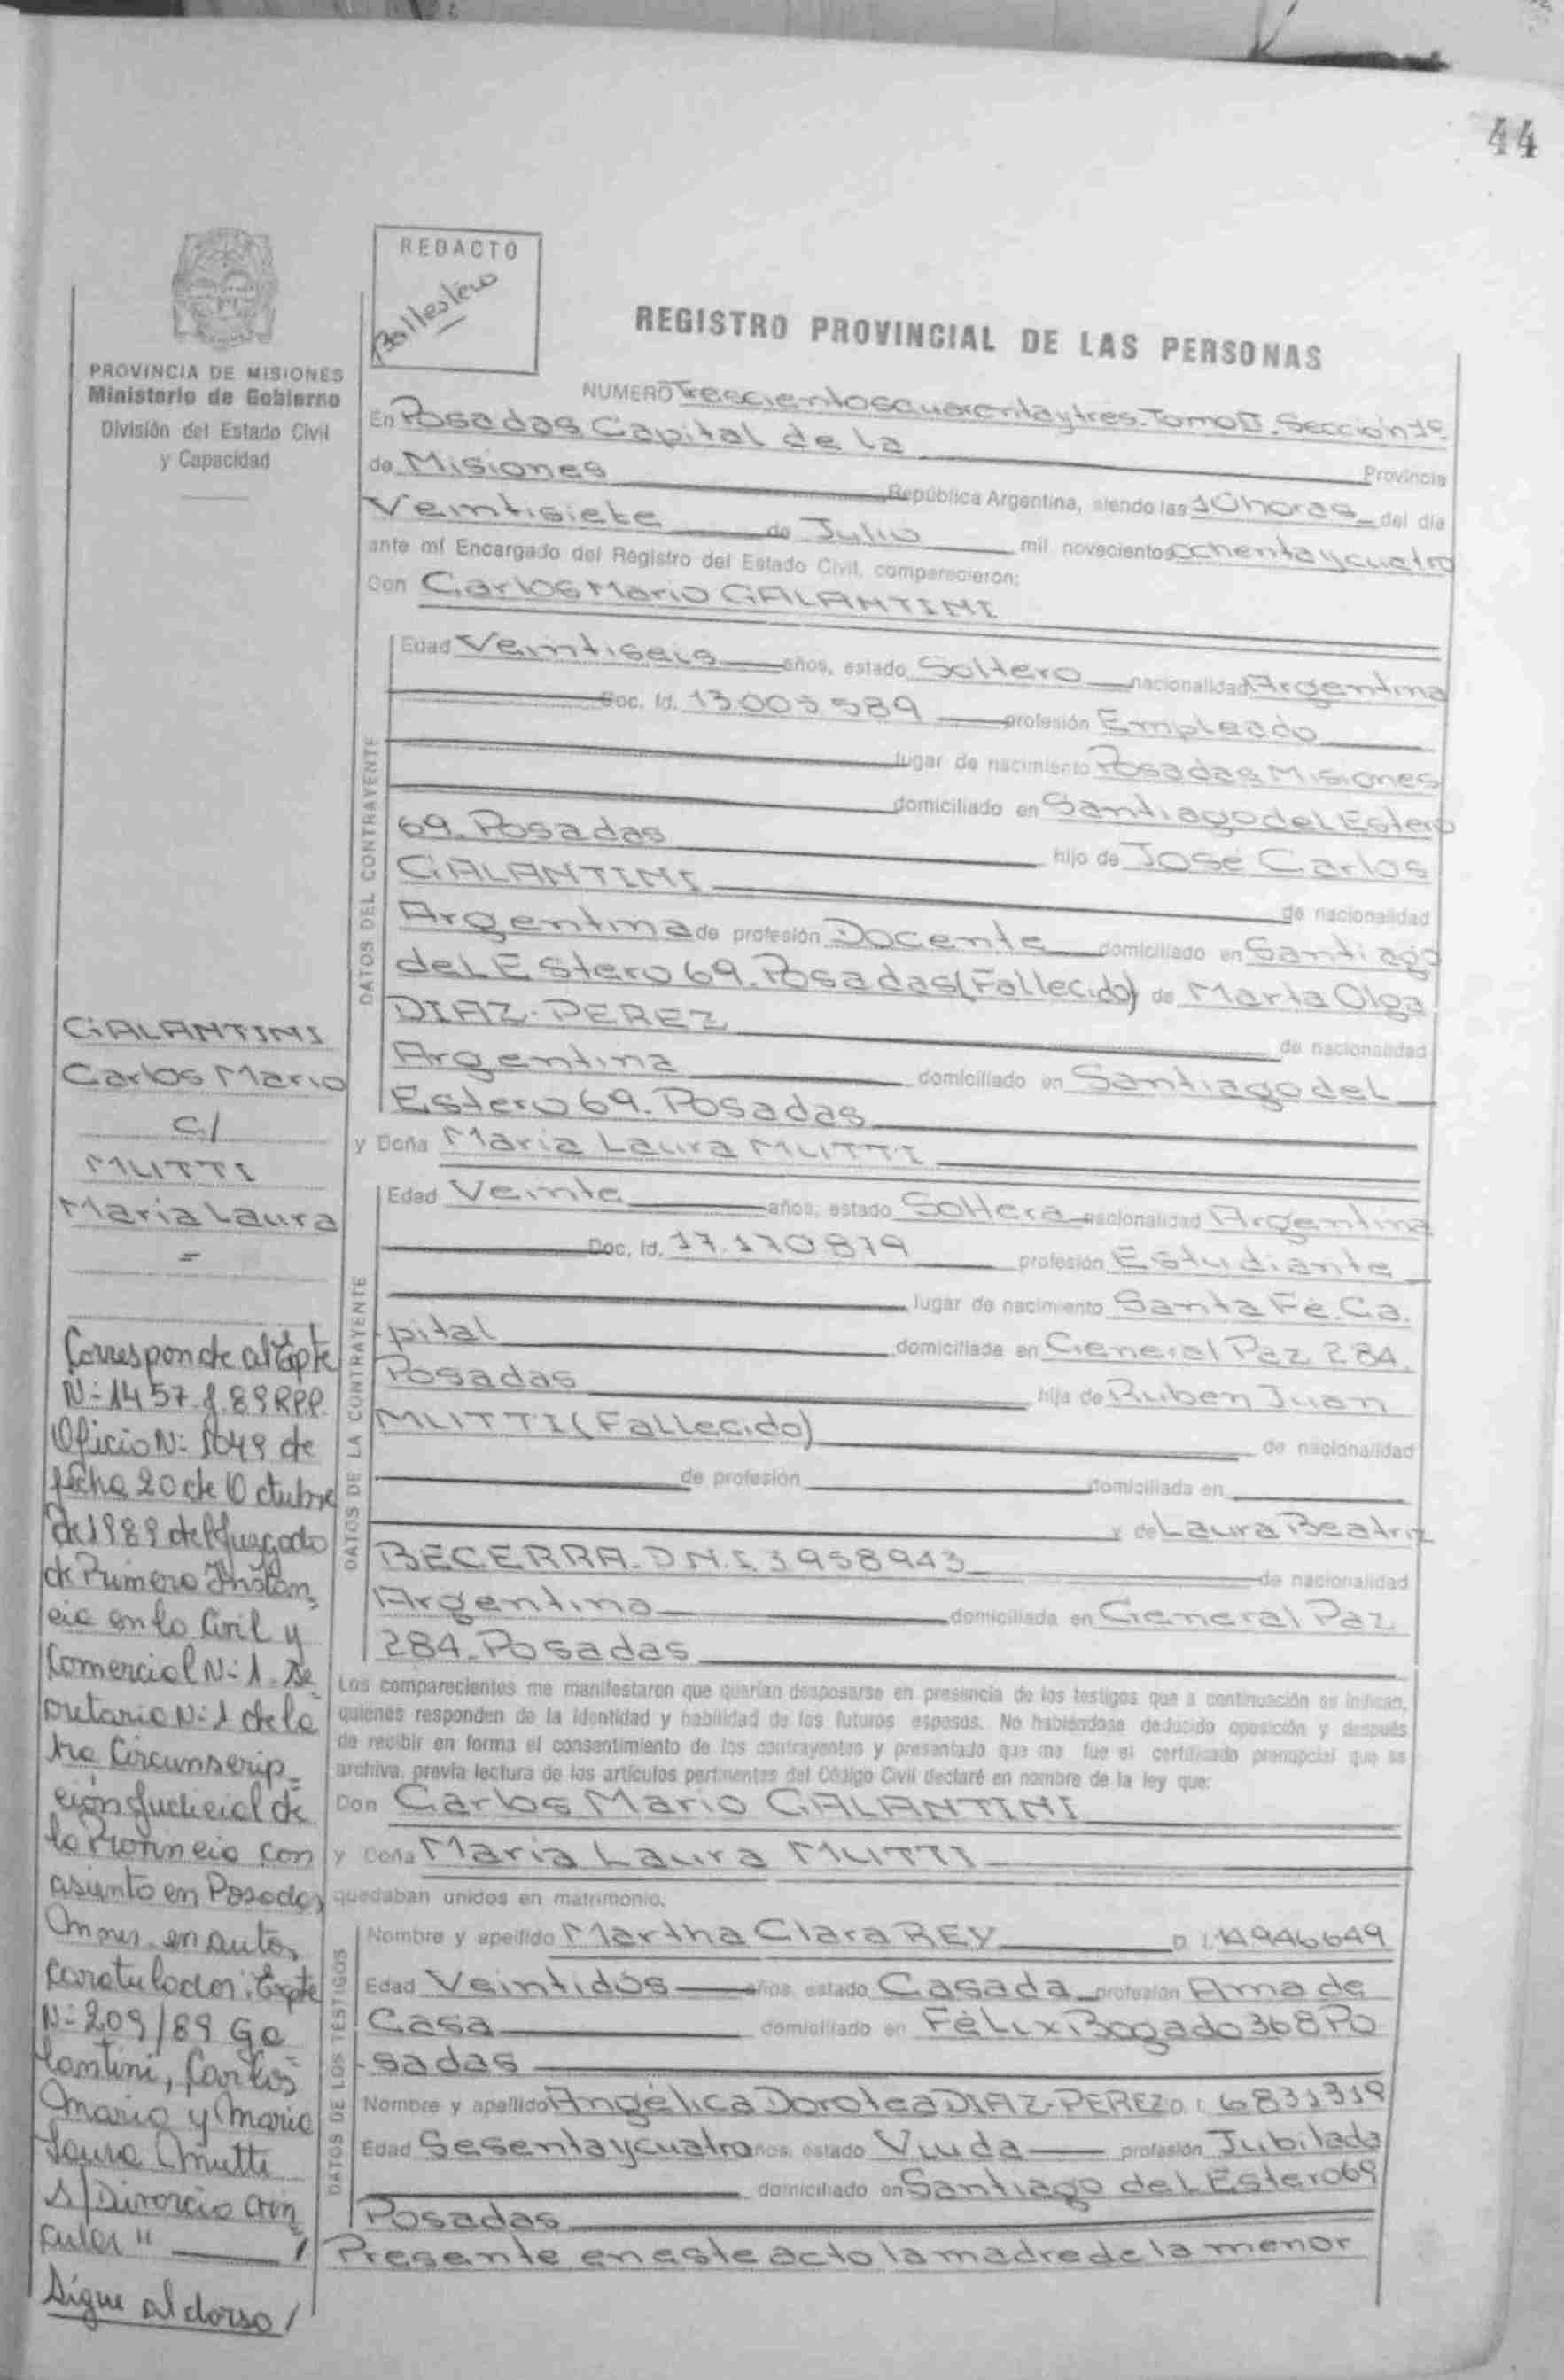 44
REDACTO
Ballestero
PROVINCIA DE MISIONES
Ministerio de Gobierno
División del Estado Civil
y Capacidad
REGISTRO PROVINCIAL DE LAS PERSONAS
NUMERO Trescientoscuarentaytres. Tomo II. Sección 1º.
En Posadas Capital de la
Provincia
de Misiones República Argentina, siendo las 10 horas del día
Veintisiete de Julio mil novecientos ochenta y cuatro
ante mí Encargado del Registro del Estado Civil, comparecieron:
Don Carlos Mario GALANTINI
DATOS DEL CONTRAYENTE
Edad Veintiseis años, estado Soltero nacionalidad Argentina
Doc. Id. 13.005.589 profesión Empleado
lugar de nacimiento Posadas Misiones
domiciliado en Santiago del Estero
69. Posadas hijo de José Carlos
GALANTINI de nacionalidad
Argentina de profesión Docente domiciliado en Santiago
del Estero 69. Posadas (Fallecido) de Marta Olga
DIAZ-PEREZ de nacionalidad
Argentina domiciliado en Santiago del
Estero 69. Posadas
y Doña Maria Laura MUTTI
DATOS DE LA CONTRAYENTE
Edad Veinte años, estado Soltera nacionalidad Argentina
Doc. Id. 17.170.879 profesión Estudiante
lugar de nacimiento Santa Fé. Ca
pital domiciliada en General Paz 284.
Posadas hija de Ruben Juan
MUTTI (Fallecido) de nacionalidad
de profesión domiciliada en
y de Laura Beatriz
BECERRA. D.N.I. 3958943 de nacionalidad
Argentina domiciliada en General Paz
284. Posadas
Los comparecientes me manifestaron que querían desposarse en presencia de los testigos que a continuación se indican,
quienes responden de la identidad y habilidad de los futuros esposos. No habiéndose deducido oposición y después
de recibir en forma el consentimiento de los contrayentes y presentado que me fue el certificado prenupcial que se
archiva, previa lectura de los artículos pertinentes del Código Civil declaré en nombre de la ley que:
Don Carlos Mario GALANTINI
y Doña Maria Laura MUTTI
quedaban unidos en matrimonio.
DATOS DE LOS TESTIGOS
Nombre y apellido Martha Clara REY D.I. 14946649
Edad Veintidós años, estado Casada profesión Ama de
Casa domiciliado en Félix Bogado 368 Po
-sadas
Nombre y apellido Angélica Dorotea DIAZ-PEREZ D.I. 6831319
Edad Sesentaycuatro años, estado Viuda profesión Jubilada
domiciliado en Santiago del Estero 69
Posadas
Presente en este acto la madre de la menor
GALANTINI
Carlos Mario
c/
MUTTI
Maria Laura
=
Corresponde al Expte
N: 1457. J. 89 RPP.
Oficio N: 1049 de
fecha 20 de Octubre
de 1989 del Juzgado
de Primera Instan
cia en lo Civil y
Comercial N: 1. Se
cretaria N: 1 de la
1ra Circunscrip
ción Judicial de
la Provincia con
asiento en Posadas
Mnes. en autos
caratulados: Expte
N: 209/89 Ga
lantini, Carlos
Mario y Maria
Laura Mutti
s/ Divorcio Vin
cular"
Sigue al dorso/